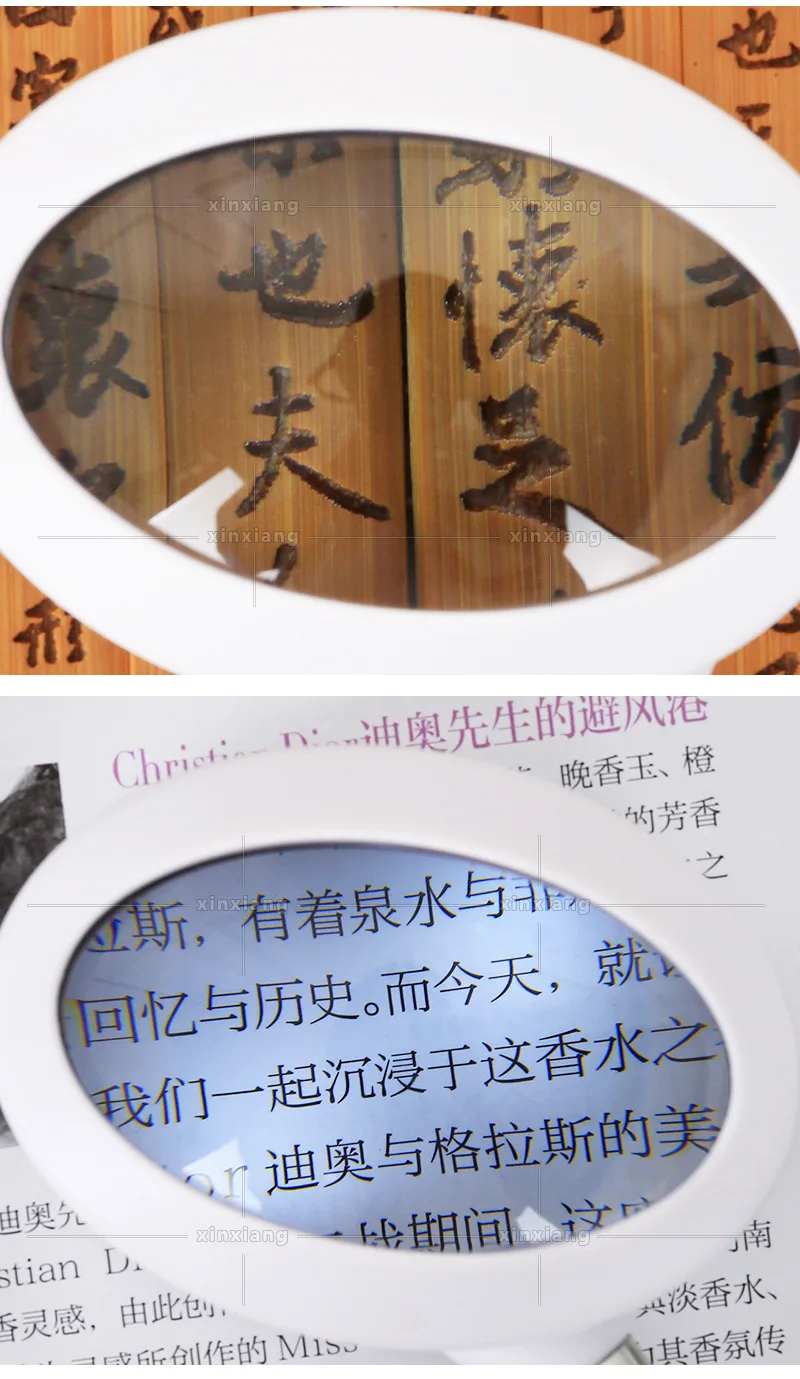 也
宇
xinxiang xinxiang
也
夫
懷
足
仿
xinxiang xinxiang
形
Christian Dior迪奥先生的避风港
晚香玉、橙
的芳香
之
拉斯，有着泉水与非
xinxiang xinxiang
回忆与历史。而今天，就让
我们一起沉浸于这香水之
or 迪奥与格拉斯的美
战期间，这
迪奥先
xinxiang xinxiang
南
stian Di
典淡香水、
香灵感，由此创
灵感所创作的 Miss
其香氛传